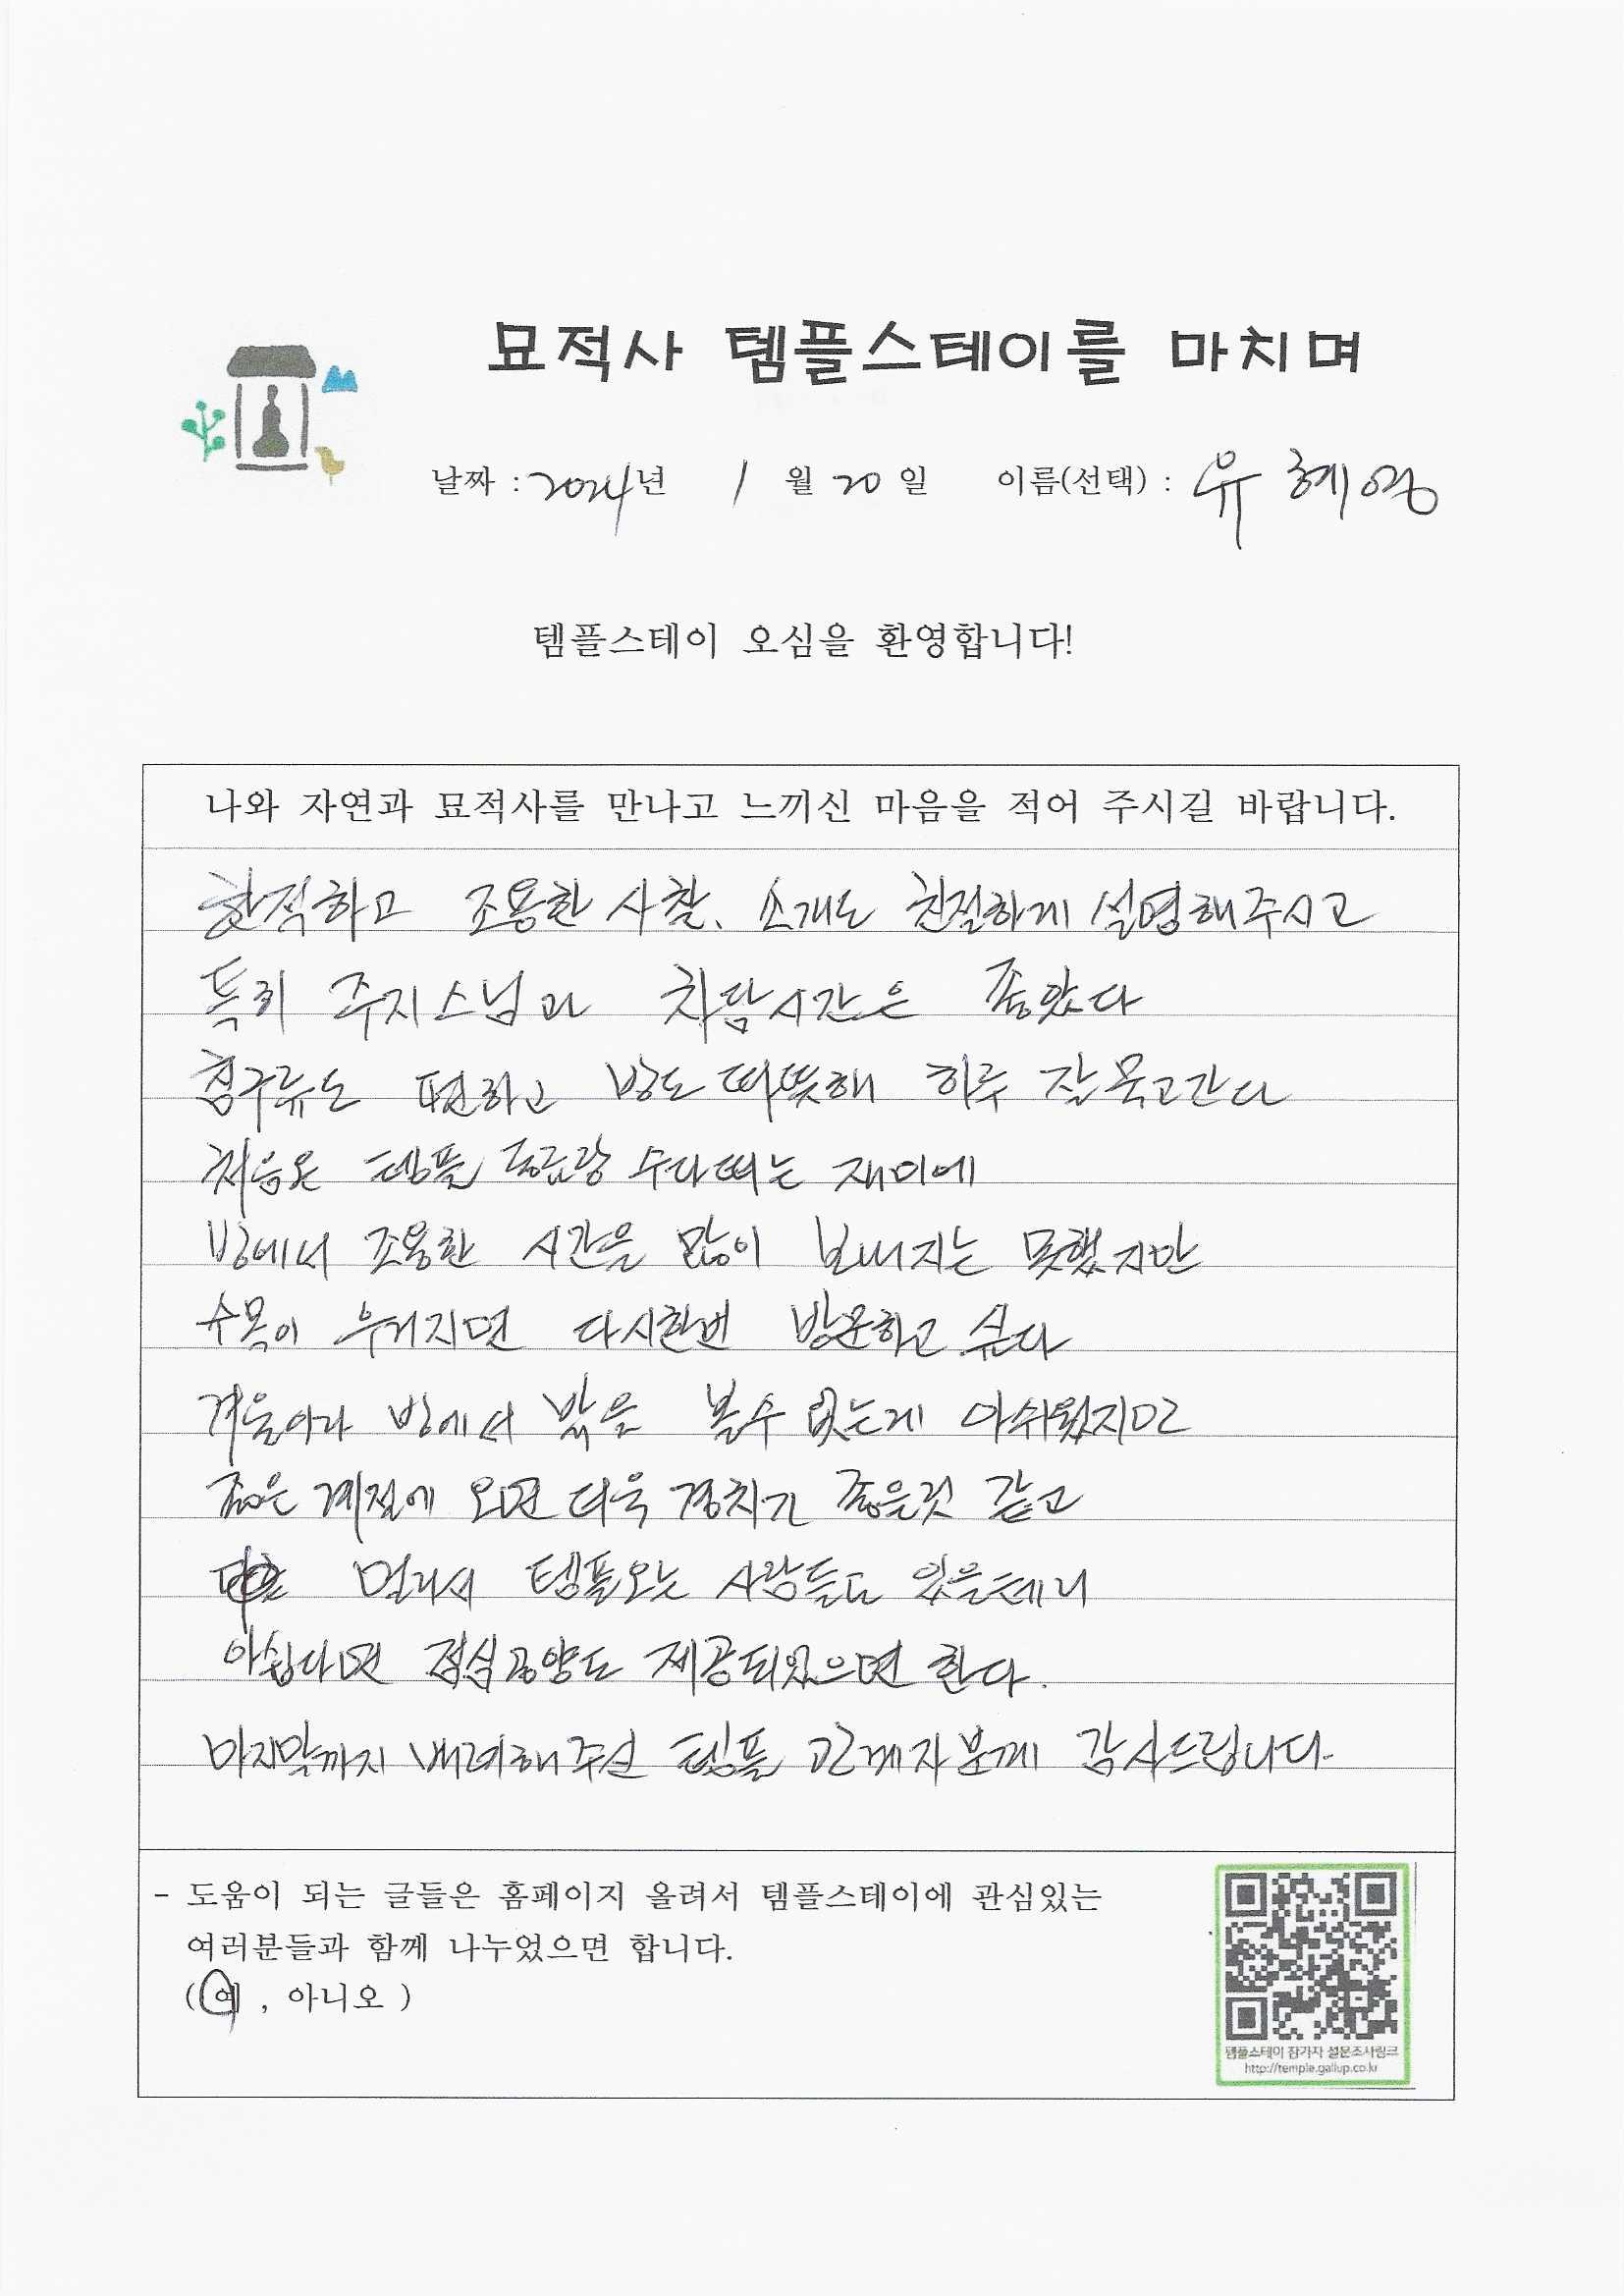 묘적사 템플스테이를 마치며
날짜 : 2024년 1 월 20 일 이름(선택) : 유혜영
템플스테이 오심을 환영합니다!
나와 자연과 묘적사를 만나고 느끼신 마음을 적어 주시길 바랍니다.
한적하고 조용한 사찰. 소개도 친절하게 설명해주시고
특히 주지스님과 차담시간은 좋았다
침구류도 편하고 방도 따뜻해 하루 잘 묵고간다
처음온 템플 동료랑 수다떠는 재미에
방에서 조용한 시간을 많이 보내지는 못했지만
수목이 우거지면 다시한번 방문하고 싶다
겨울이라 방에서 밖을 볼수 없는게 아쉬웠지만
좋은 계절에 오면 더욱 경치가 좋을것 같고
멀리서 템플오는 사람들도 있을테니
아쉽다면 점심공양도 제공되었으면 한다.
마지막까지 배려해주신 템플 관계자분께 감사드립니다.
- 도움이 되는 글들은 홈페이지 올려서 템플스테이에 관심있는
여러분들과 함께 나누었으면 합니다.
( 예 , 아니오 )
템플스테이 참가자 설문조사링크
http://temple.gallup.co.kr